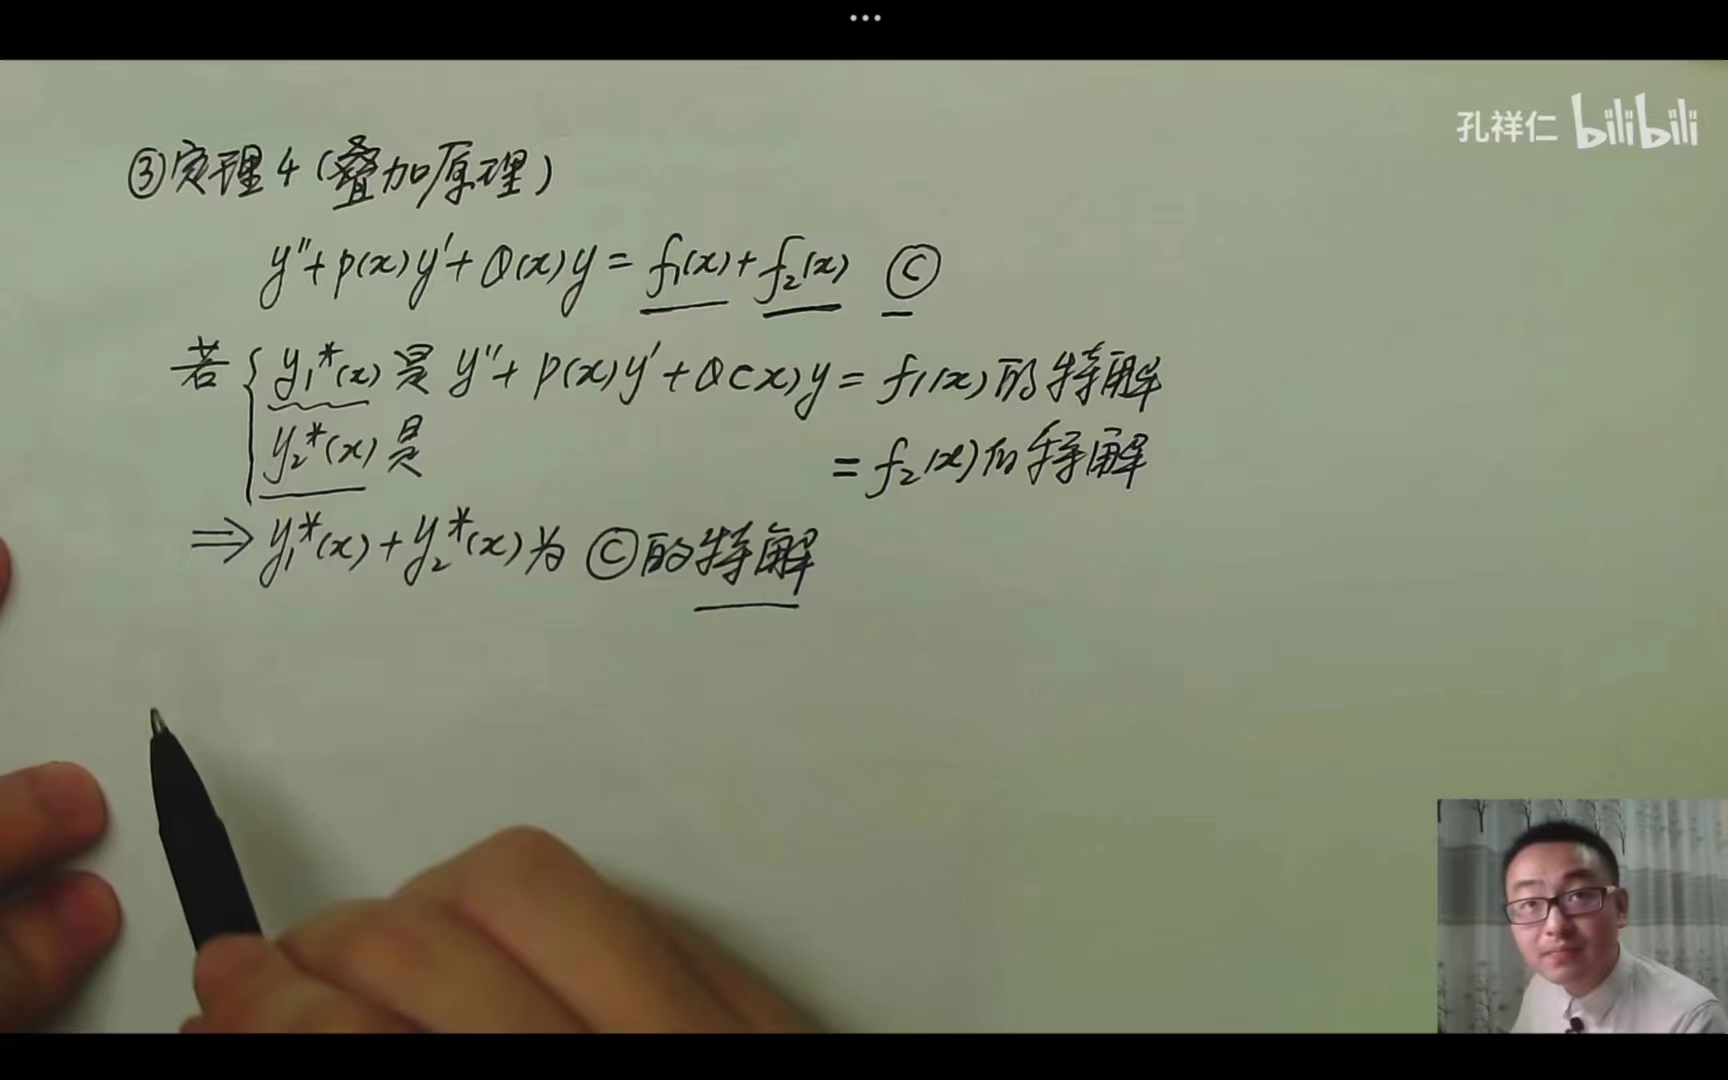 ...
孔祥仁 bilibili
③定理4(叠加原理)
y''+p(x)y'+Q(x)y=f₁(x)+f₂(x) Ⓒ
若{y₁*(x)是y''+p(x)y'+Q(x)y=f₁(x)的特解
y₂*(x)是 =f₂(x)的特解
⇒y₁*(x)+y₂*(x)为Ⓒ的特解